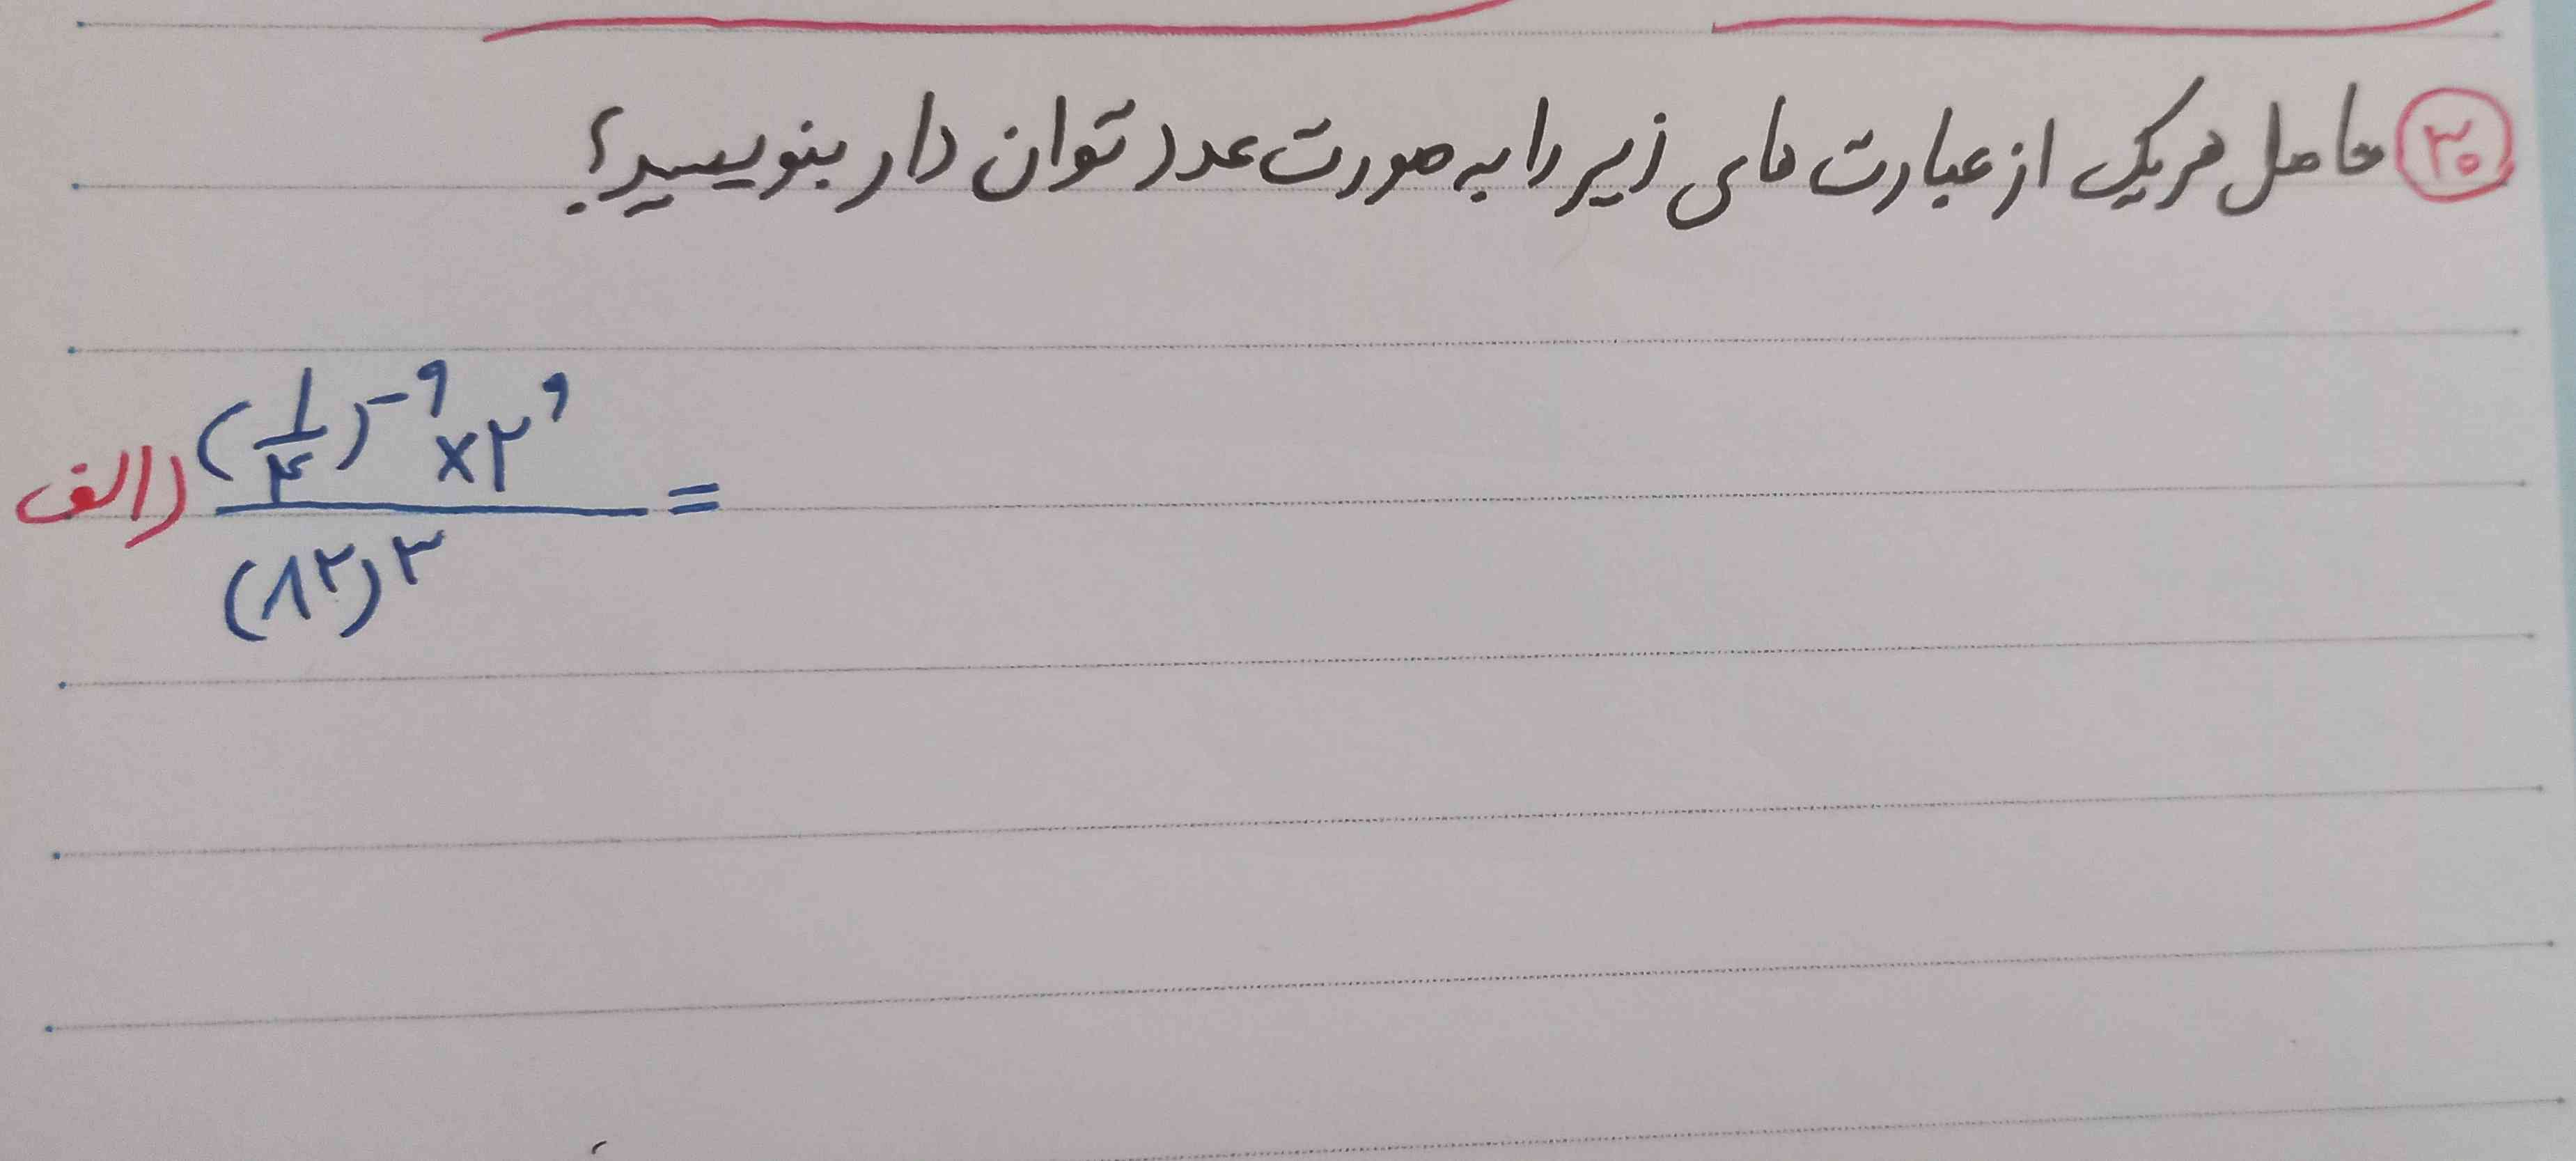 ۳۰ حاصل هریک از عبارت های زیر را به صورت عدد توان دار بنویسید؟
الف) ((۱/۴)^-۹ × ۲^۹) / (۸^۲)^۳ =